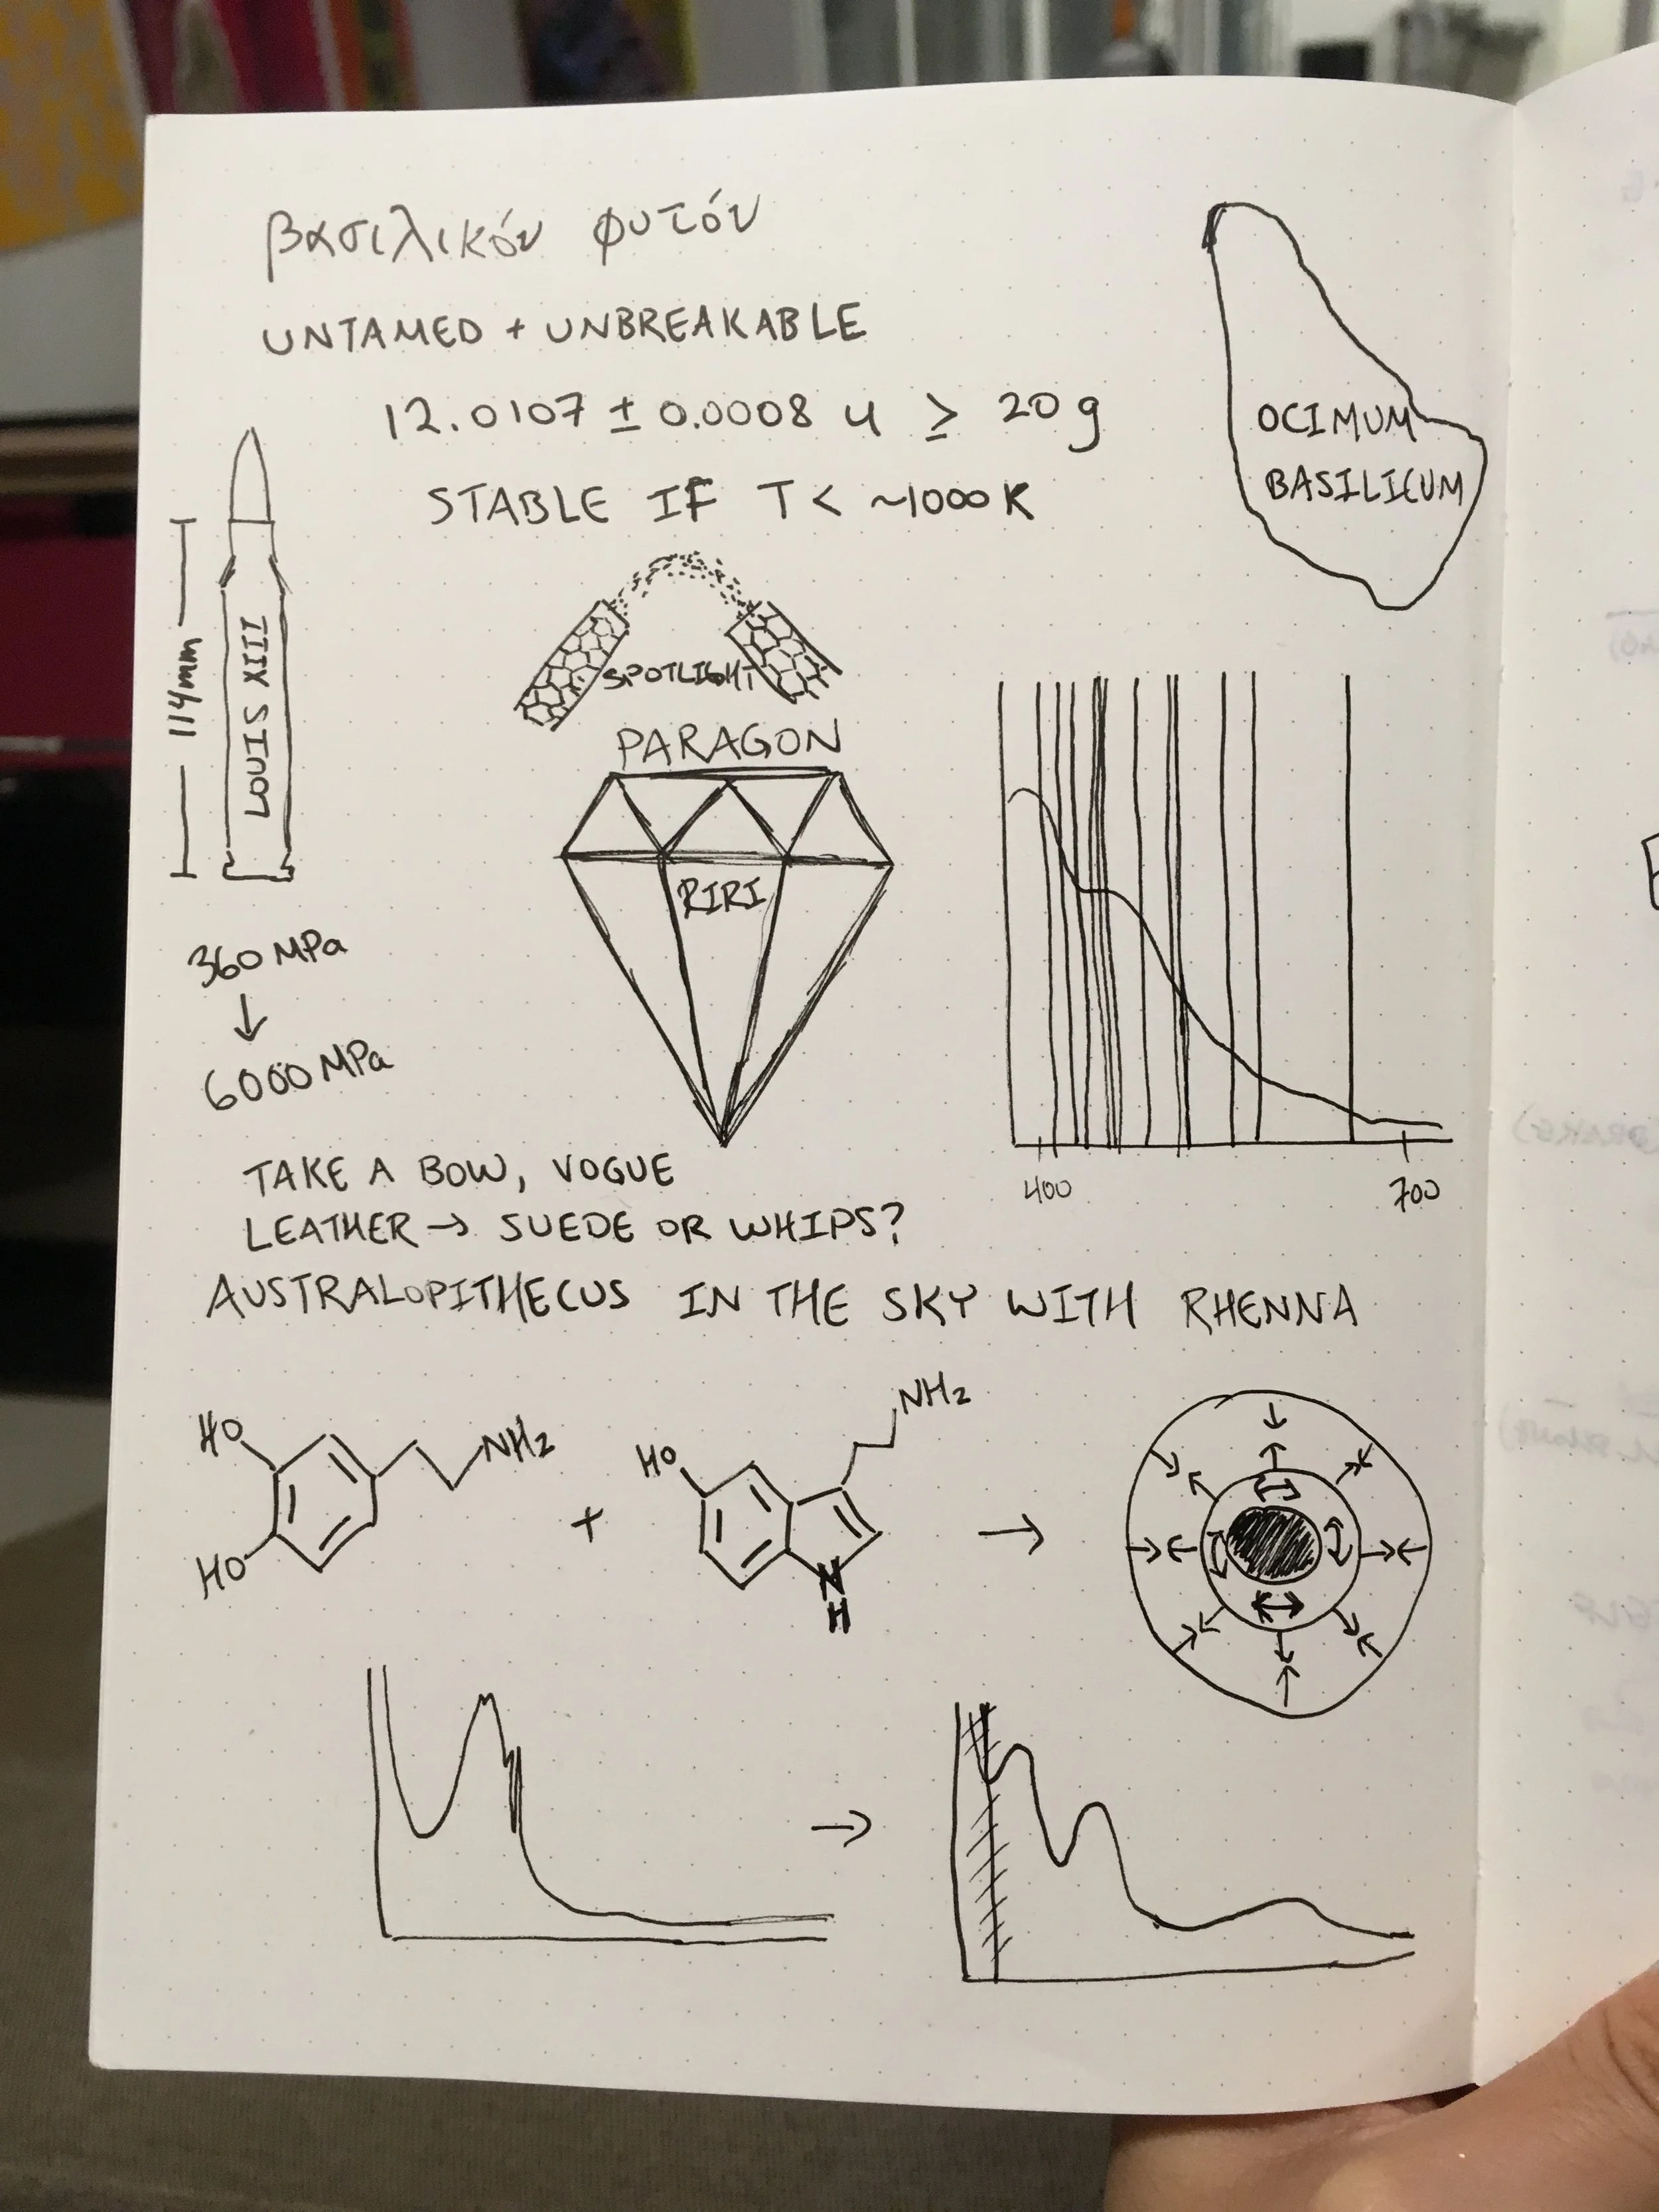 βασιλικόν φυτόν
UNTAMED + UNBREAKABLE
12.0107 ± 0.0008 u ≥ 20 g
STABLE IF T < ~1000 K
OCIMUM
BASILICUM
114mm
LOUIS XIII
SPOTLIGHT
PARAGON
RIRI
360 MPa
↓
6000 MPa
400
700
TAKE A BOW, VOGUE
LEATHER → SUEDE OR WHIPS?
AUSTRALOPITHECUS IN THE SKY WITH RHENNA
HO
HO
NH2
+
HO
NH2
N
H
→
→